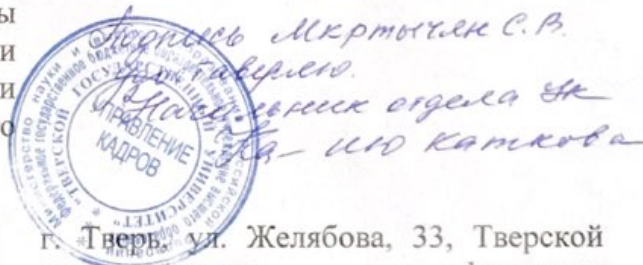 ы
и
и
о
Подпись Мкртычян С.В.
удостоверяю.
Начальник отдела УК
И.Ю Каткова
УПРАВЛЕНИЕ
КАДРОВ
ТВЕРСКОЙ ГОСУДАРСТВЕННЫЙ УНИВЕРСИТЕТ
г. Тверь, ул. Желябова, 33, Тверской